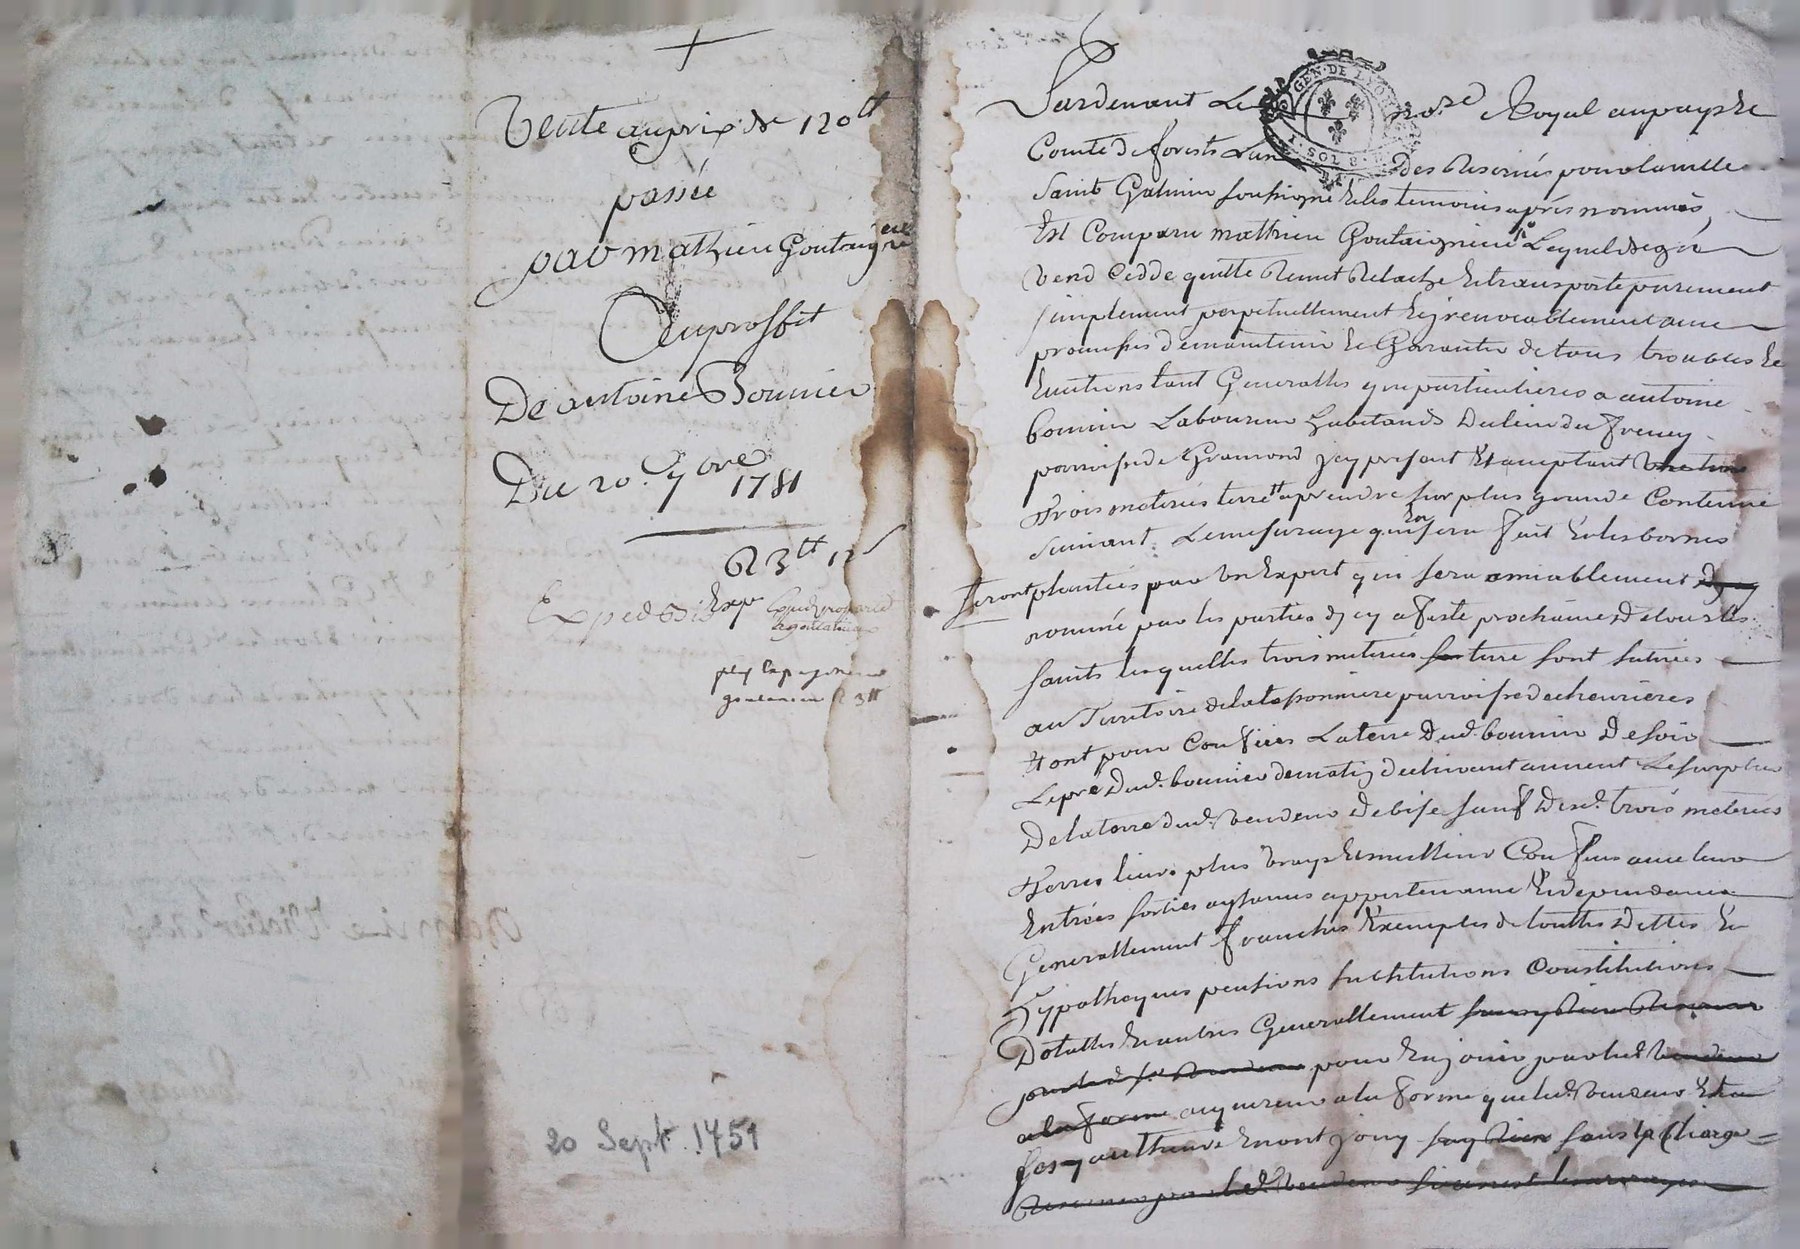 Vente au prix de 120 tt
passée
par mathieu Goutaignieu
Au proffit
De antoine Bounier
Du 20. 7bre
1781
R 3 tt 12 s
Exped
R 3 tt
20 Sept. 1751
GEN · DE LYON
1 · SOL 8 D
Pardevant Le no.re Royal au pays de
Comté de forests L'un des Reservés pour la ville
Saint Galmier soussigné & les temoins après nommés
Est Comparu matthieu Goutaignieu Lequel de gré
vend cedde quitte Remet Relache & transporte purement
simplement perpetuellement & irrevocablement avec
promesses de maintenir & Garantir de tous troubles &
Evictions tant Generalles que particulieres a antoine
bounier Laboureur habitant du lieu du freney
parroisse de Gramond icy present & acceptant
Trois meterés terre a prendre sur plus grande Contenue
Suivant Le mesurage qui en sera fait & les bornes
seront plantées par un Expert qui sera amiablement
nommé par les parties d'icy a feste prochaine de tous les
saints lesquelles trois meterés terre sont situées
au Territoire de la parroisse de chevrieres
& ont pour Confins La terre dud. bounier de soir
Le pré dud. bounier de matin declinant au vent Le surplus
De la terre dud. vendeur de bise sauf desd. trois meterés
Terres leurs plus vrays & meilleurs Confins avec leurs
Entrées sorties aysances appartenances & dependances
Generallement franches & exemptes de touttes Dettes &
hypotheques pensions substitutions Constitutions
Dotalles & autres Generallement
pour En jouir par led.
a la forme acquereur a la forme que led. vendeur & ses
autheurs En ont jouy sans la Charge